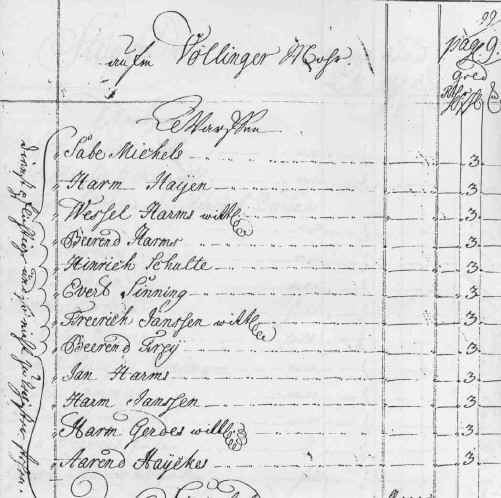 99
pag 9.
aufm Völlinger Mohr.
Gred
Sabe Michels 3.
Harm Haÿen 3.
Wessel Harms wittwe 3.
Beerend Harms 3.
Hinrich Schulte 3.
Evert Sinning 3.
Freerich Janssen wittwe 3.
Beerend Freÿ 3.
Jan Harms 3.
Harm Janssen 3.
Harm Gerdes wittwe 3.
Aarend Haÿekes 3.